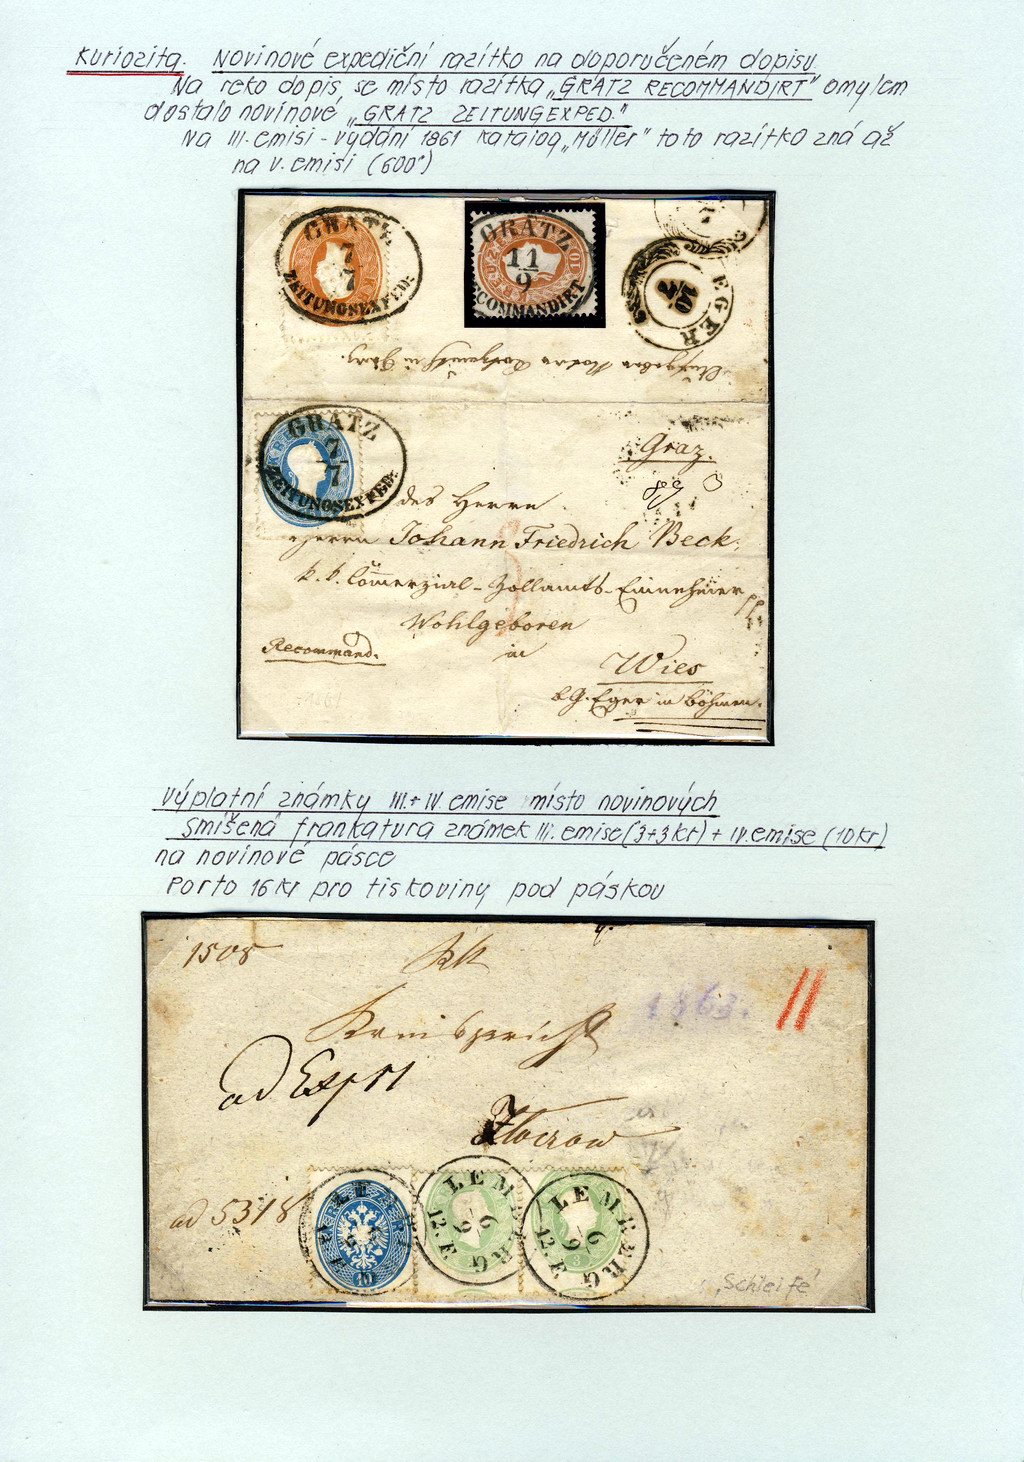 Kuriozita. Novinové expediční razítko na doporučeném dopisu.
Na reko dopis, se místo razítka „GRATZ RECOMMANDIRT" omylem
dostalo novinové „GRATZ ZEITUNGEXPED."
Na III. emisi - vydání 1861 katalog „Müller" toto razítko zná až
na V. emisi (600°)
GRATZ
7/7
ZEITUNGSEXPED:
GRATZ
11/9
RECOMMANDIRT
EGER
10/7
GRATZ
7/7
ZEITUNGSEXPED:
Graz.
des Herrn
Herrn Johann Friedrich Beck,
k. k. Commerzial-Zollamts-Einneh̄mer
Wohlgeboren
in
Recommand.
Wies
b/. Eger in Böhmen.
Výplatní známky III.+IV. emise místo novinových
Smíšená frankatura známek III. emise (3+3kr) + IV. emise (10kr)
na novinové pásce
Porto 16 kr pro tiskoviny pod páskou
1508
KK
1863.
11
Kreisgericht
ad Exp 11
Złoczow
ad 5318
LEMBERG
LEMBERG
9/6
12.F.
LEMBERG
9/6
12.F.
„Schleife"